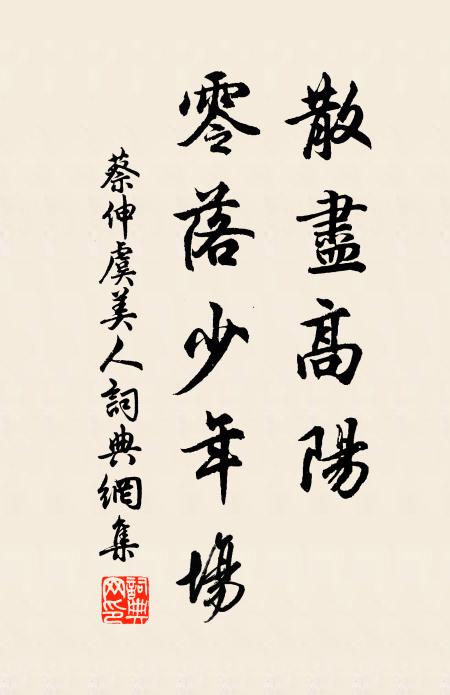 散盡高陽
零落少年場
蔡伸虞美人詞典網集
詞典網印